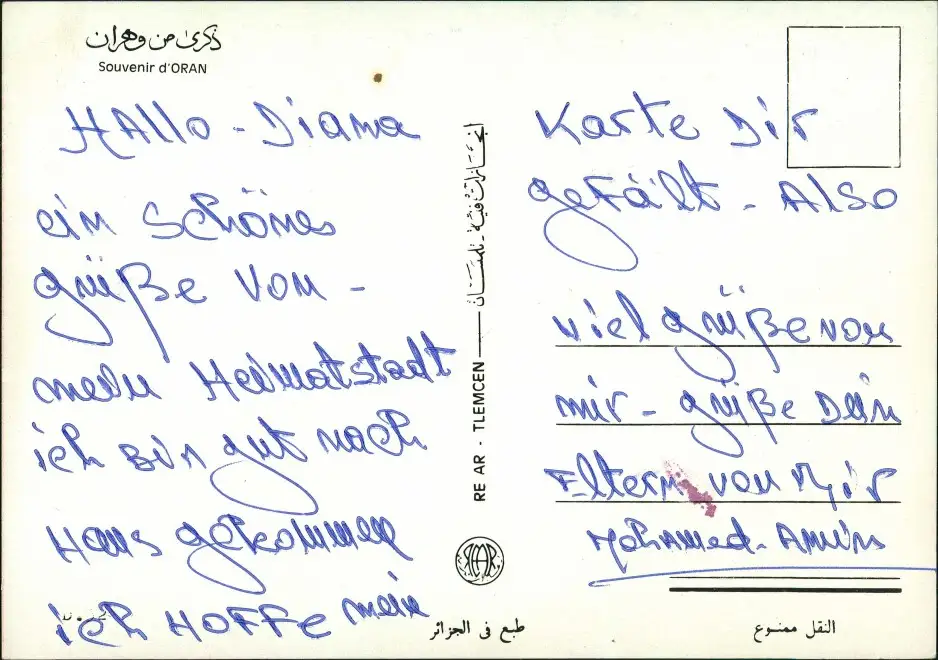 ذكرى من وهران
Souvenir d'ORAN
HAllo - Diana
ein schönes
grüße von -
mein Heimatstadt
ich bin gut nach
Haus gekommen
ich HOFFE mein
Karte Dir
gefält - Also
viel grüße von
mir - grüße Dein
Eltern von Mir
Mohamed - Amin
RE AR - TLEMCEN
طبع في الجزائر
النقل ممنوع